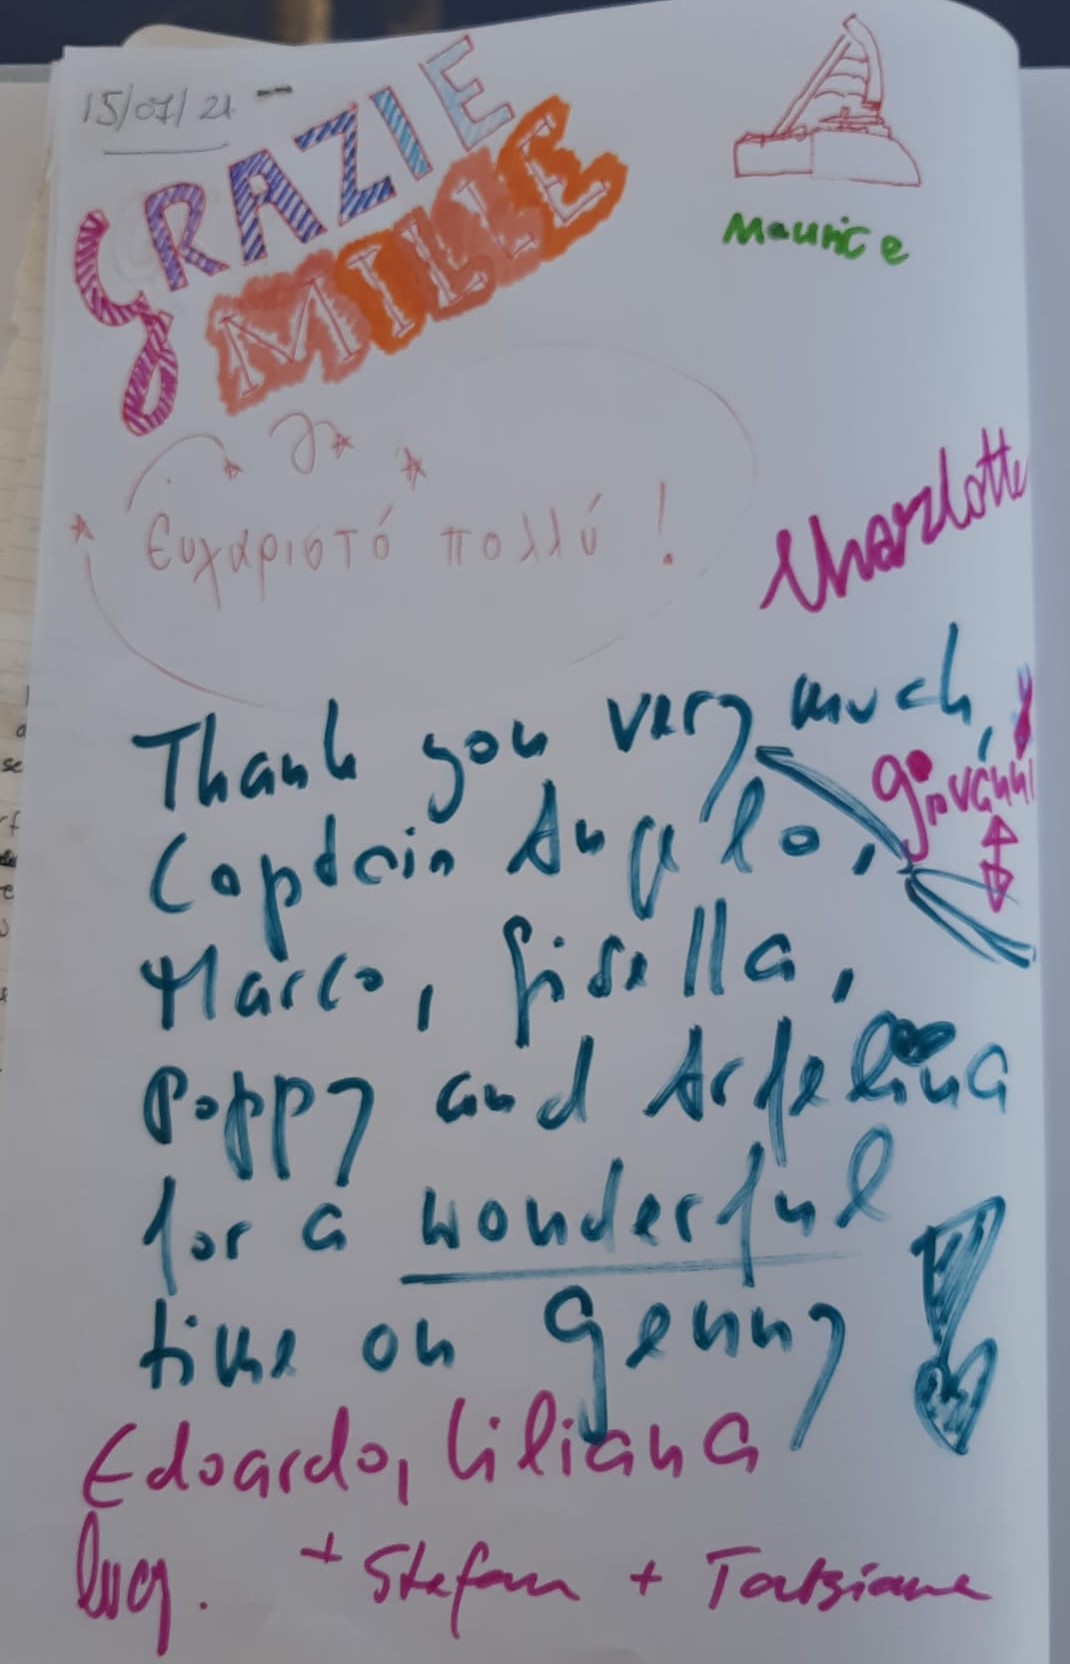 15/07/21 -
GRAZIE
MILLE
Maurice
Ευχαριστό πολλύ !
Charlotte
Thank you very much,
Giovanni
Captain Angelo,
Marco, Gisella,
Poppy and Arfelina
for a wonderful
time on Genny
Edoardo, Liliana
Luca.  + Stefan + Tatsiana